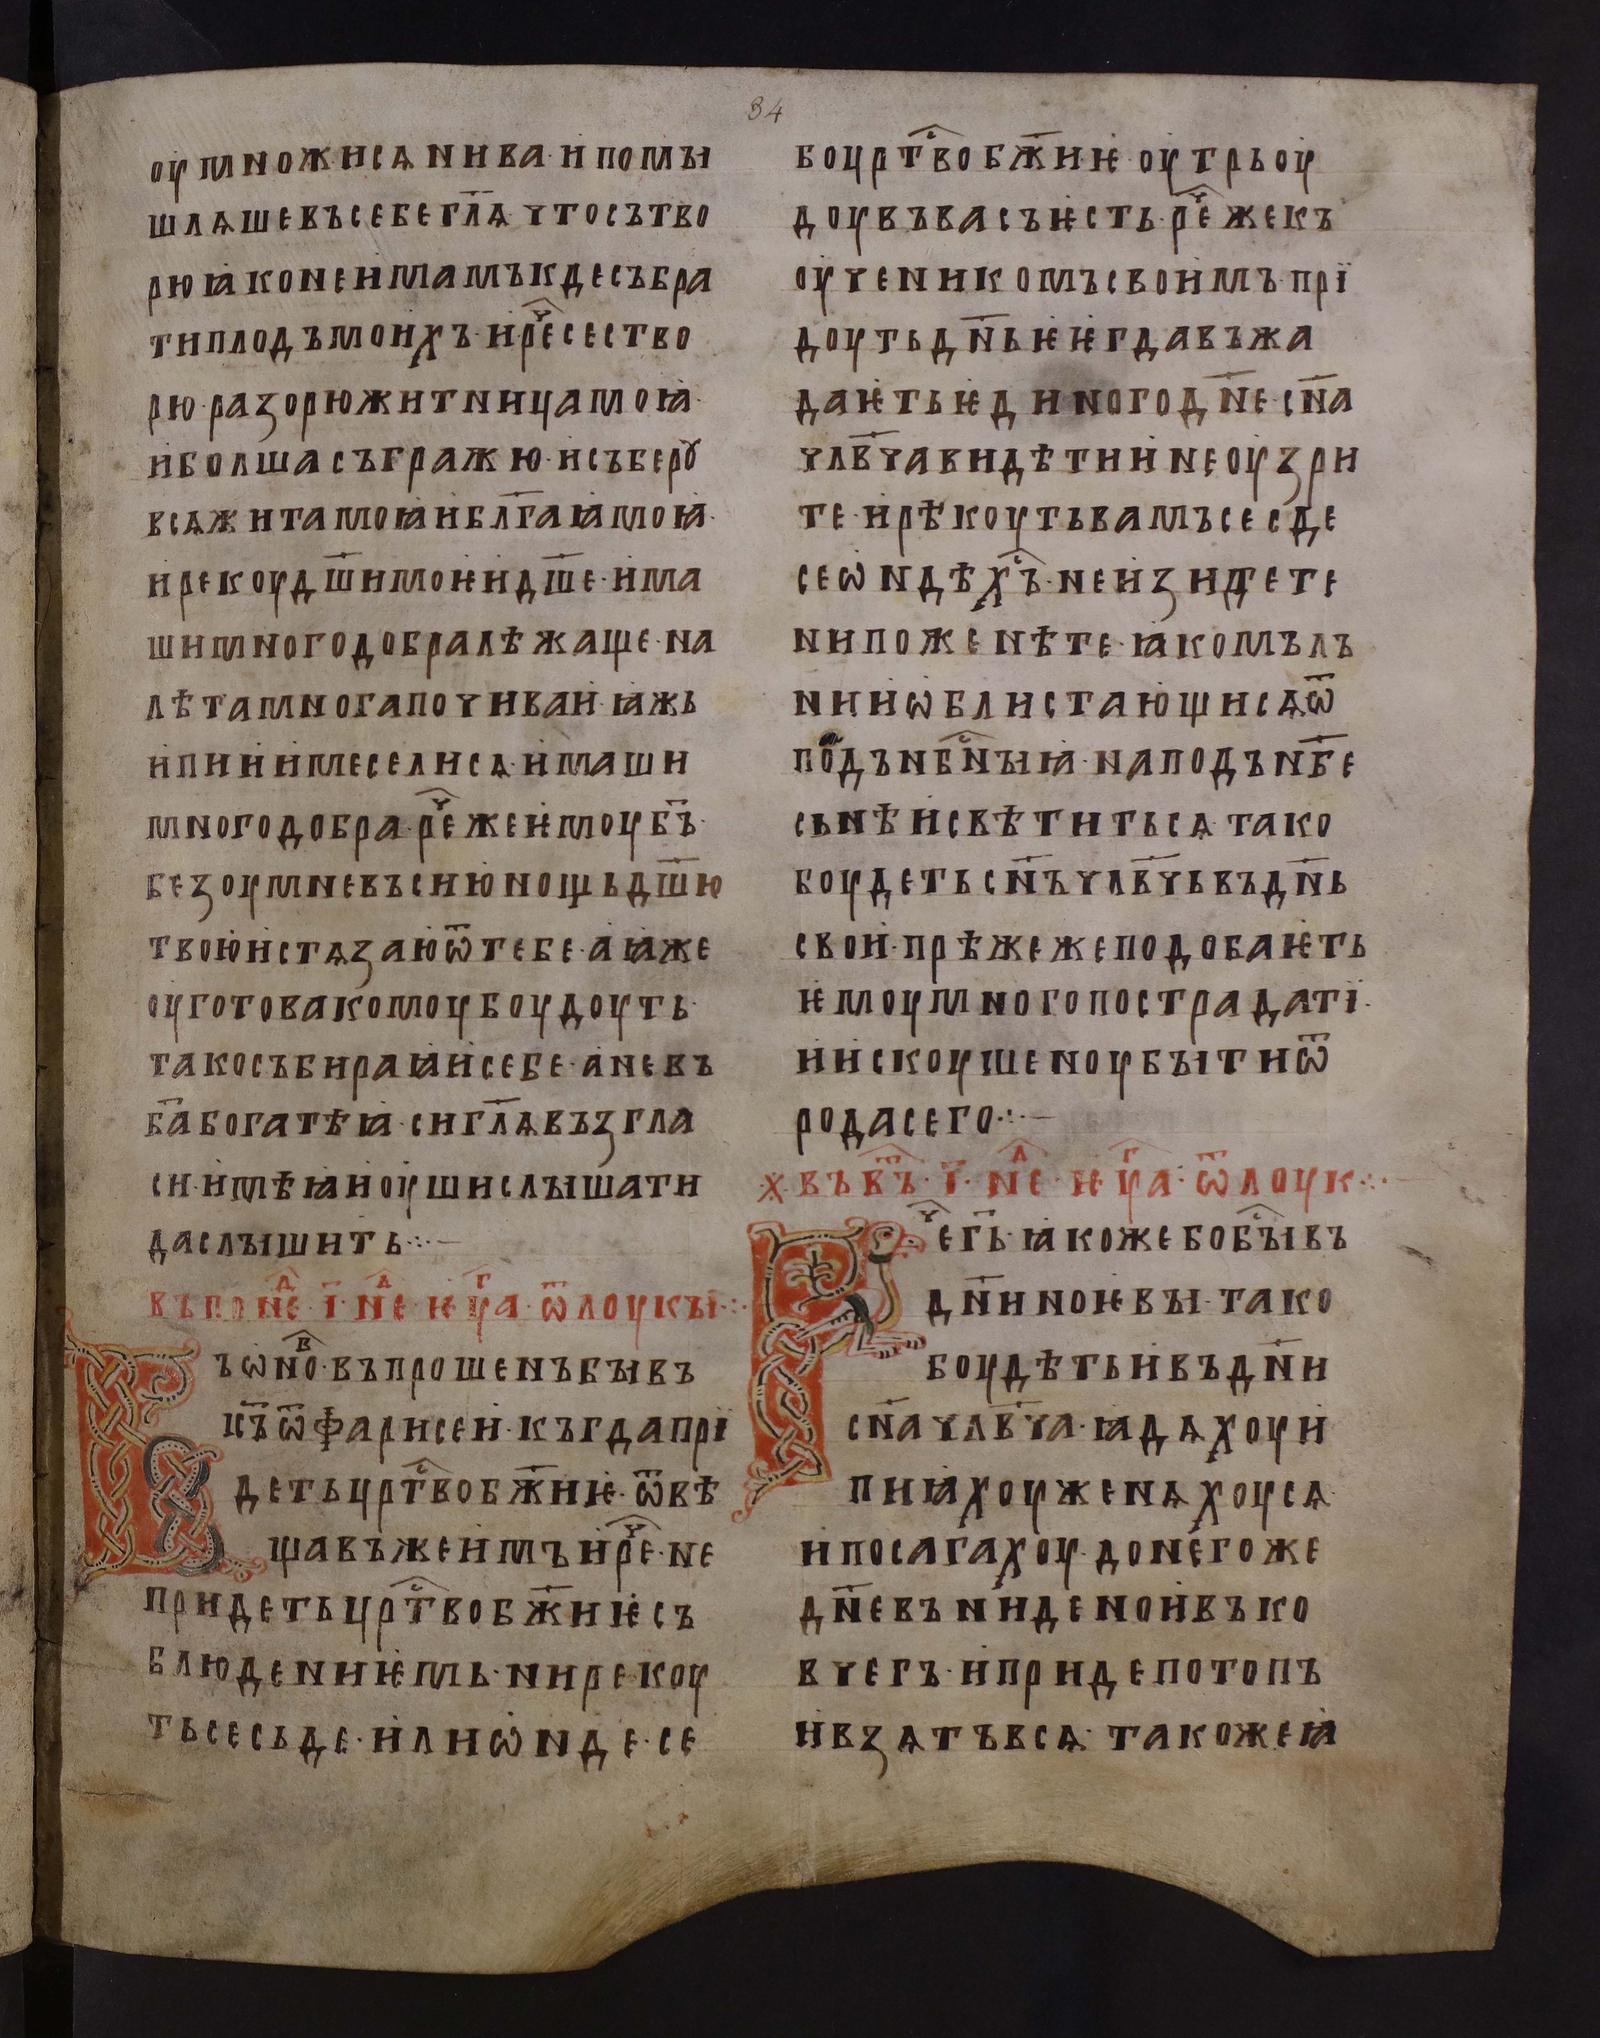 34
оумножисѧ нива· и помꙑ
шлѧше въ себе гл҃ѧ· что сътво
рю ꙗко не имамъ кде събра
ти плодъ моихъ· и рⷱ҇е се ство
рю· разорю житница моꙗ·
и болша съгражю· и съберꙋ
всѧ жита моꙗ и бл҃гаꙗ моꙗ·
и рекоу дш҃и моѥи дш҃е· има
ши много добра лѣжаще· на
лѣта многа почиваи· ꙗжь
и пии и меселисѧ· имаши
много добра· рⷱ҇е же ѥмоу бъ҃·
безоумне въ сию нощь дш҃ю
твою истѧзаю ѿ тебе· а ꙗже
оуготова комоу боудоуть·
тако събираꙗи себе· а не въ
ба҃ богатѣꙗ· си гл҃ѧ възгла
си· имѣꙗи оуши слꙑшати
да слꙑшить·:·—
въ понⷣе· і҃· нⷣе· ѥⷢуа· ѿ лоукꙑ·:·
Въ ѡноⷡ· въпрошенъ бꙑвъ
іс҃ъ ѿ фарисеи· къгда прї
деть црⷭ҇тво бж҃иѥ· ѿвѣ
щавъ же имъ и рⷱ҇е· не
придеть црⷭ҇тво бж҃иѥ съ
блюдениѥмь· ни рекоу
ть се сьде· или ѡнде· се
бо црⷭ҇тво бж҃иѥ· оутрьоу
доу въ васъ ѥсть· рⷱ҇е же къ
оученикомъ своимъ· прї
доуть дн҃ьѥ ѥгда въжа
даѥть ѥдиного дн҃е· сн҃а
члв҃ча видѣти и не оузри
те· и рѣкоуть вамъ се сде
се ѡндѣхⷭ҇ъ· не изидете
ни поженѣте· ꙗко мълъ
нии ѡблистающисѧ ѿ
подъ нбⷭ҇нꙑꙗ· на подъ нб҃е
сьнѣи свѣтитьсѧ· тако
боудеть сн҃ъ члв҃чь въ дн҃ь
свои· прѣже же подобаѥть
ѥмоу много пострадатї·
и искоушеноу бꙑти ѿ
рода сего·:·—
х· въ вⷮъ· і҃· нⷣе· ѥⷢуа· ѿ лоук·:·—
Рⷱ҇е гь҃· ꙗкоже бо бⷭ҇ꙑ въ
дн҃и ноѥвꙑ· тако
боудѣть и въ дн҃и
сн҃а члв҃ча· ꙗдѧхоу и
пиꙗхоу женѧхоусѧ·
и посагахоу· до негоже
дн҃е въниде нои въ ко
вчегъ· и приде потопъ
и взѧтъ всѧ· такоже ꙗ